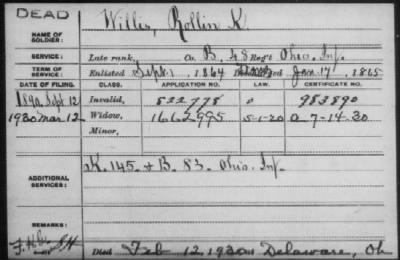 DEAD
NAME OF SOLDIER: Willis, Rollin K.
SERVICE: Late rank, Co. B, 48 Reg't Ohio Inf.
TERM OF SERVICE: Enlisted Sept. 1, 1864 Jan. 17, 1865
DATE OF FILING. CLASS. APPLICATION NO. LAW. CERTIFICATE NO.
1890, Sept 12 Invalid, 822778 983890
1930 Mar. 12 Widow, 1662995 5-1-20 a 7-14-30
Minor,
ADDITIONAL SERVICES: K. 145. + B. 83. Ohio. Inf.
REMARKS:
Died Feb 12, 1930 Delaware, Oh